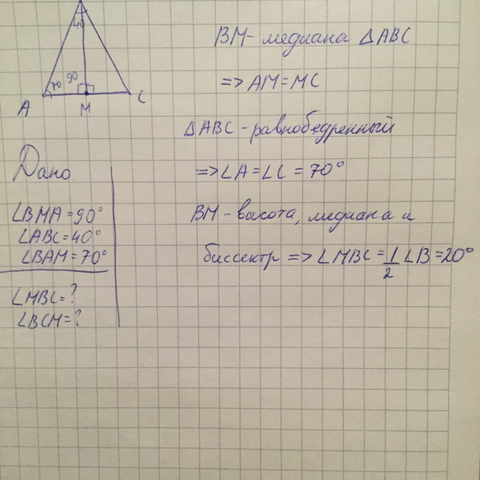 40
70 90
A M C
Дано
∠BMA = 90°
∠ABC = 40°
∠BAM = 70°
∠MBC = ?
∠BCM = ?
BM - медиана △ABC
=> AM = MC
△ABC - равнобедренный
=> ∠A = ∠C = 70°
BM - высота, медиана и
биссектр => ∠MBC = 1/2 ∠B = 20°